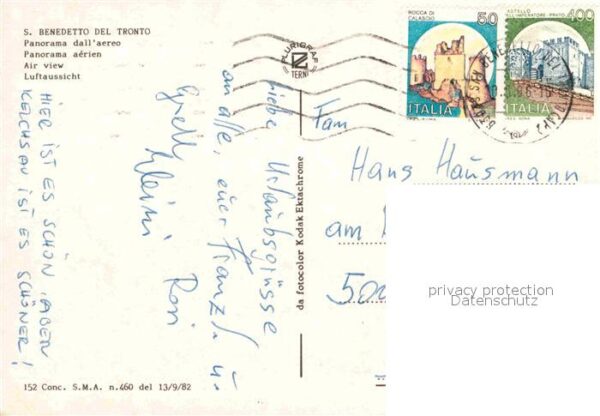 S. BENEDETTO DEL TRONTO
Panorama dall'aereo
Panorama aérien
Air view
Luftaussicht
PLURIGRAF
TERNI
ROCCA DI CALASCIO
50
ITALIA
CASTELLO DELL'IMPERATORE - PRATO
400
ITALIA
Liebe Urlaubsgrüsse
an alle, euer Franzl u.
Gretl
Rosi
HIER IST ES SCHÖN, ABER
KELCHSAU IST ES SCHÖNER!
da fotocolor Kodak Ektachrome
Fam
Hans Hausmann
am
500
privacy protection
Datenschutz
152 Conc. S.M.A. n.460 del 13/9/82